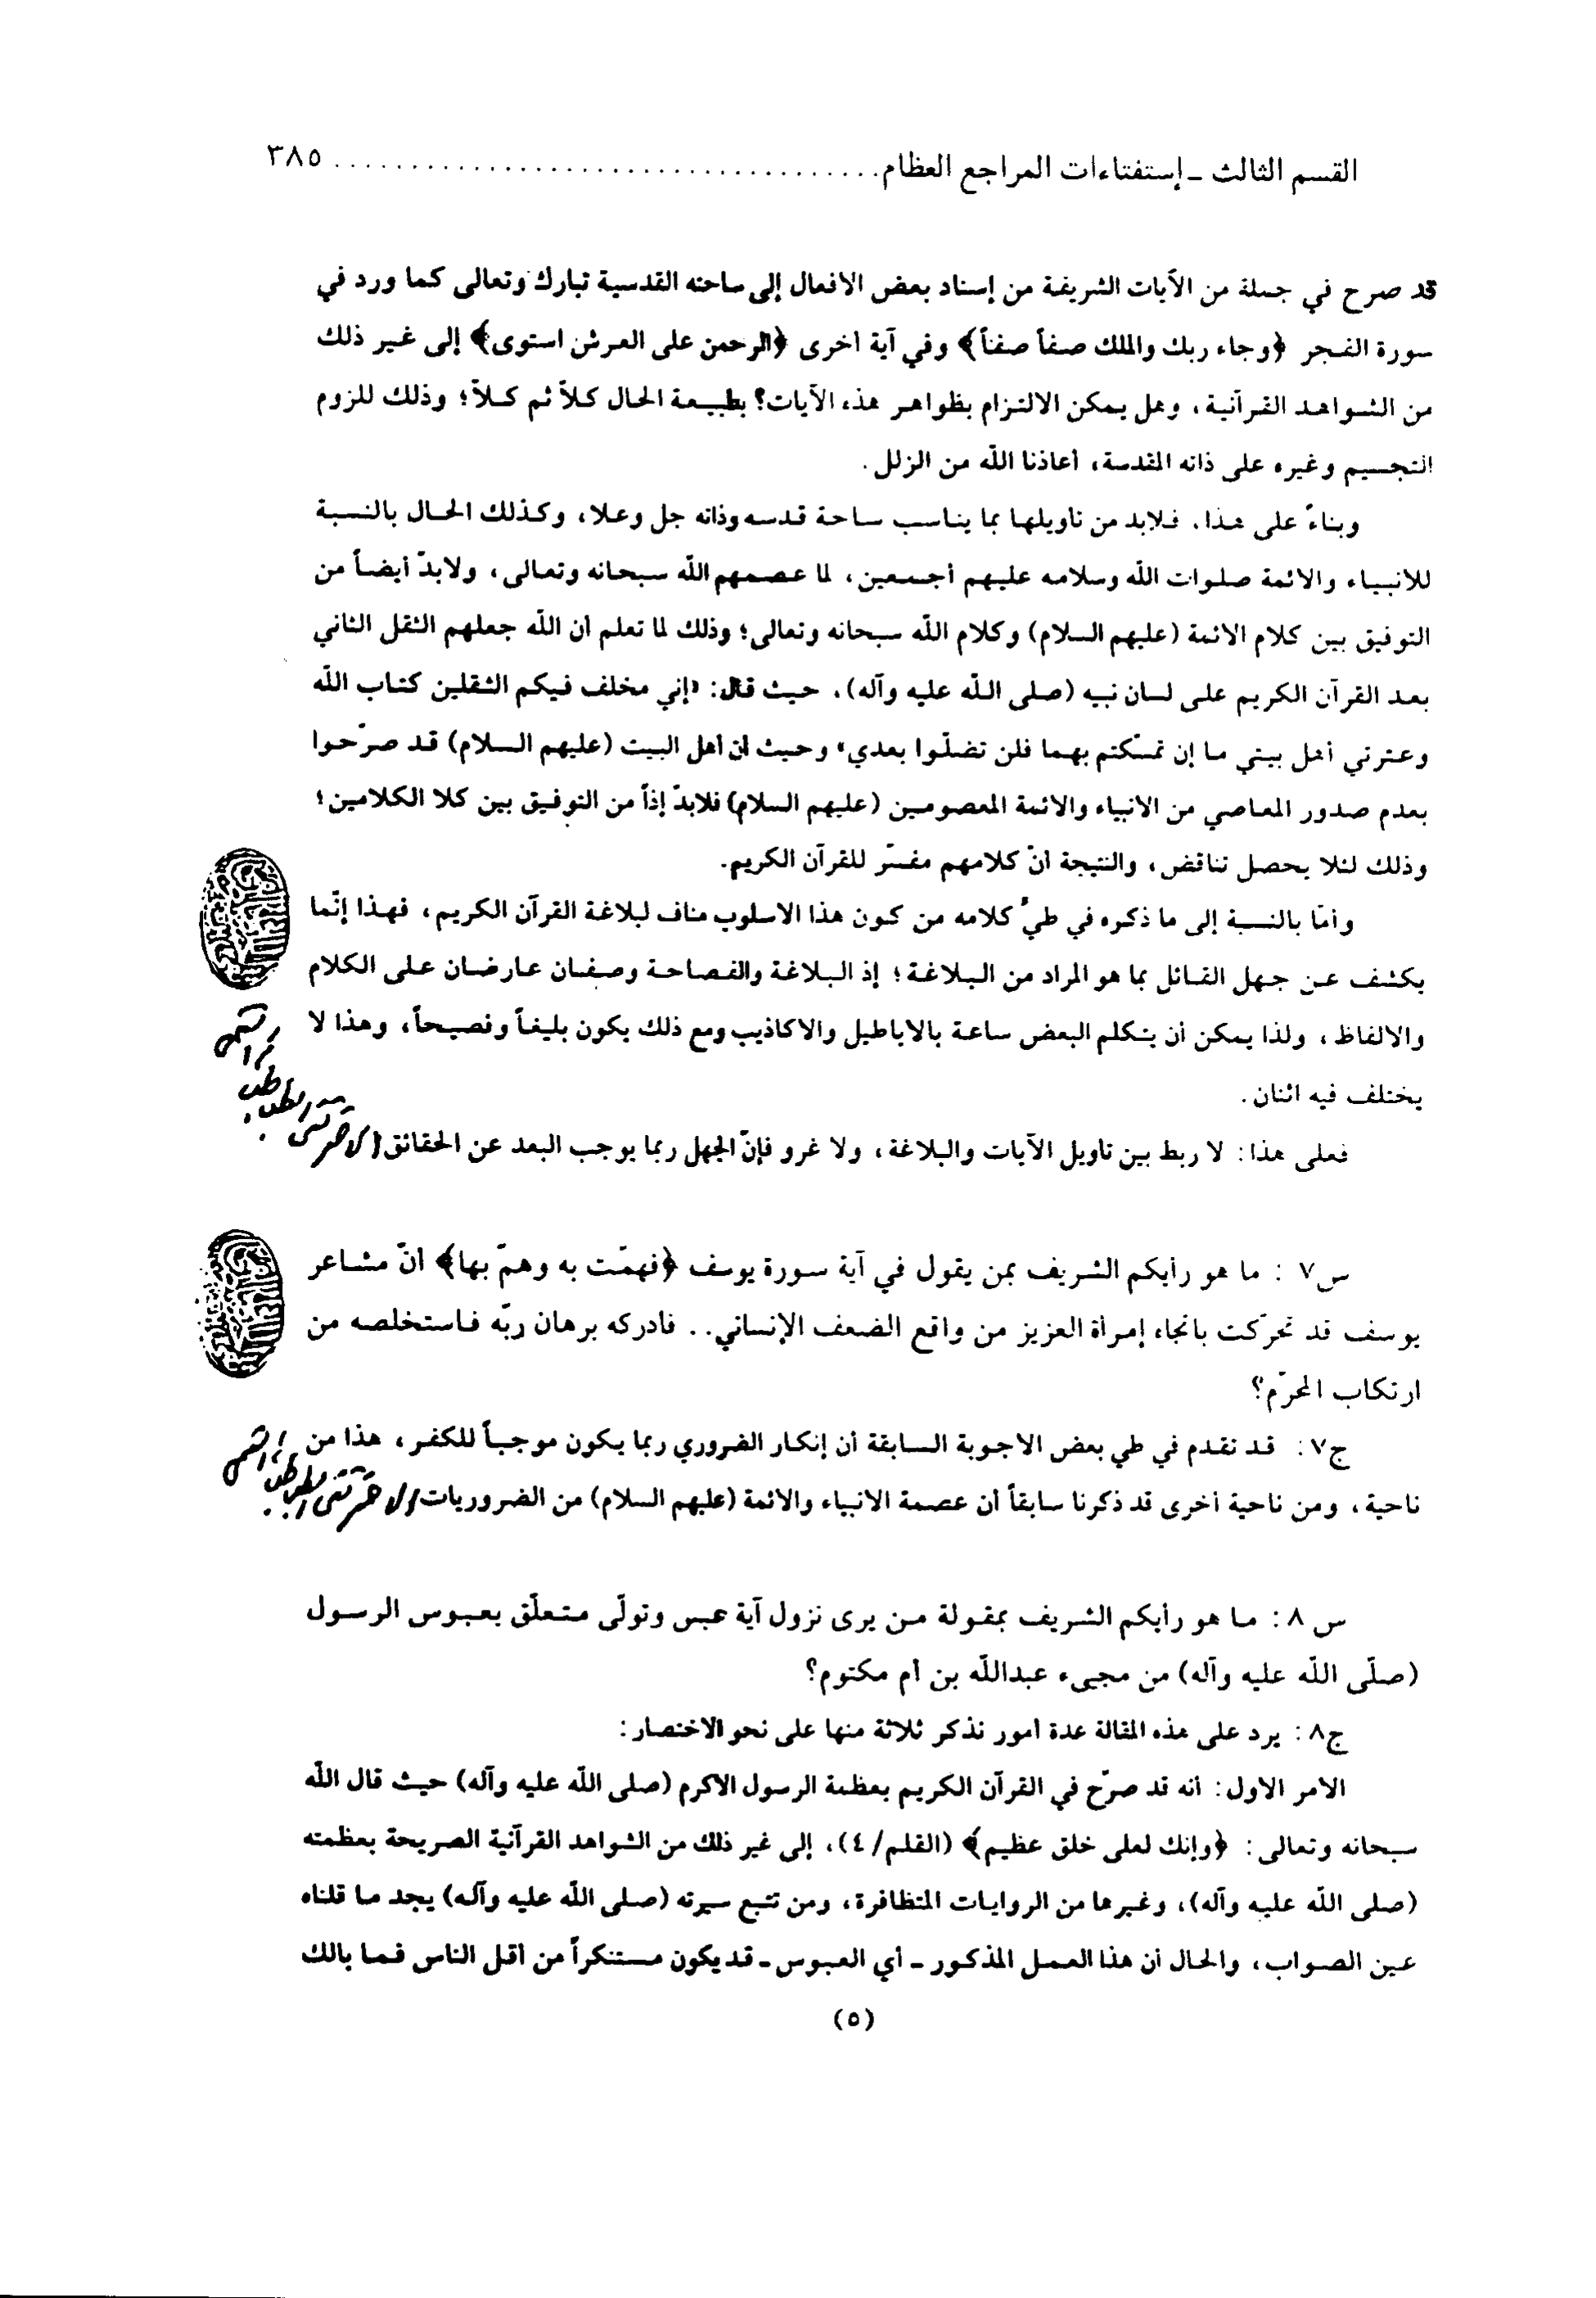 القسم الثالث ـ إستفتاءات المراجع العظام ........................................ ٣٨٥
قد صرح في جملة من الآيات الشريفة من إسناد بعض الافعال إلى ساحته القدسية تبارك وتعالى كما ورد في
سورة الفجر ﴿وجاء ربك والملك صفاً صفاً﴾ وفي آية اخرى ﴿الرحمن على العرش استوى﴾ إلى غير ذلك
من الشواهد القرآنية، وهل يمكن الالتزام بظواهر هذه الآيات؟ بطبيعة الحال كلاّ ثم كلاّ؛ وذلك للزوم
التجسيم وغيره على ذاته المقدسة، أعاذنا الله من الزلل.
وبناءً على هذا، فلابد من تاويلها بما يناسب ساحة قدسه وذاته جل وعلا، وكذلك الحال بالنسبة
للانبياء والائمة صلوات الله وسلامه عليهم أجمعين، لما عصمهم الله سبحانه وتعالى، ولابدّ أيضاً من
التوفيق بين كلام الائمة (عليهم السلام) وكلام الله سبحانه وتعالى؛ وذلك لما تعلم ان الله جعلهم الثقل الثاني
بعد القرآن الكريم على لسان نبيه (صلى الله عليه وآله)، حيث قال: «إني مخلف فيكم الثقلين كتاب الله
وعترتي أهل بيتي ما إن تمسّكتم بهما فلن تضلّوا بعدي» وحيث ان أهل البيت (عليهم السلام) قد صرّحوا
بعدم صدور المعاصي من الانبياء والائمة المعصومين (عليهم السلام) فلابدّ إذاً من التوفيق بين كلا الكلامين؛
وذلك لئلا يحصل تناقض، والنتيجة انّ كلامهم مفسّر للقرآن الكريم.
وأمّا بالنسبة إلى ما ذكره في طيّ كلامه من كون هذا الاسلوب مناف لبلاغة القرآن الكريم، فهذا إنّما
يكشف عن جهل القائل بما هو المراد من البلاغة؛ إذ البلاغة والفصاحة وصفان عارضان على الكلام
والالفاظ، ولذا يمكن أن يتكلم البعض ساعة بالاباطيل والاكاذيب ومع ذلك يكون بليغاً وفصيحاً، وهذا لا
يختلف فيه اثنان.
فعلى هذا: لا ربط بين تاويل الآيات والبلاغة، ولا غرو فإنّ الجهل ربما يوجب البعد عن الحقائق
س٧ : ما هو رأيكم الشريف بمن يقول في آية سورة يوسف ﴿فهمّت به وهمّ بها﴾ انّ مشاعر
يوسف قد تحرّكت باتجاه إمرأة العزيز من واقع الضعف الإنساني.. فادركه برهان ربّه فاستخلصه من
ارتكاب المحرّم؟
ج٧: قد تقدم في طي بعض الاجوبة السابقة أن إنكار الضروري ربما يكون موجباً للكفر، هذا من
ناحية، ومن ناحية أخرى قد ذكرنا سابقاً أن عصمة الانبياء والائمة (عليهم السلام) من الضروريات
س ٨ : ما هو رأيكم الشريف بمقولة من يرى نزول آية عبس وتولّى متعلّق بعبوس الرسول
(صلّى الله عليه وآله) من مجيء عبدالله بن أم مكتوم؟
ج٨ : يرد على هذه المقالة عدة امور نذكر ثلاثة منها على نحو الاختصار:
الامر الاول: أنه قد صرّح في القرآن الكريم بعظمة الرسول الاكرم (صلى الله عليه وآله) حيث قال الله
سبحانه وتعالى: ﴿وإنك لعلى خلق عظيم﴾ (القلم/ ٤)، إلى غير ذلك من الشواهد القرآنية الصريحة بعظمته
(صلى الله عليه وآله)، وغيرها من الروايات المتظافرة، ومن تتبع سيرته (صلى الله عليه وآله) يجد ما قلناه
عين الصواب، والحال أن هذا العمل المذكور ـ أي العبوس ـ قد يكون مستنكراً من اقل الناس فما بالك
(٥)